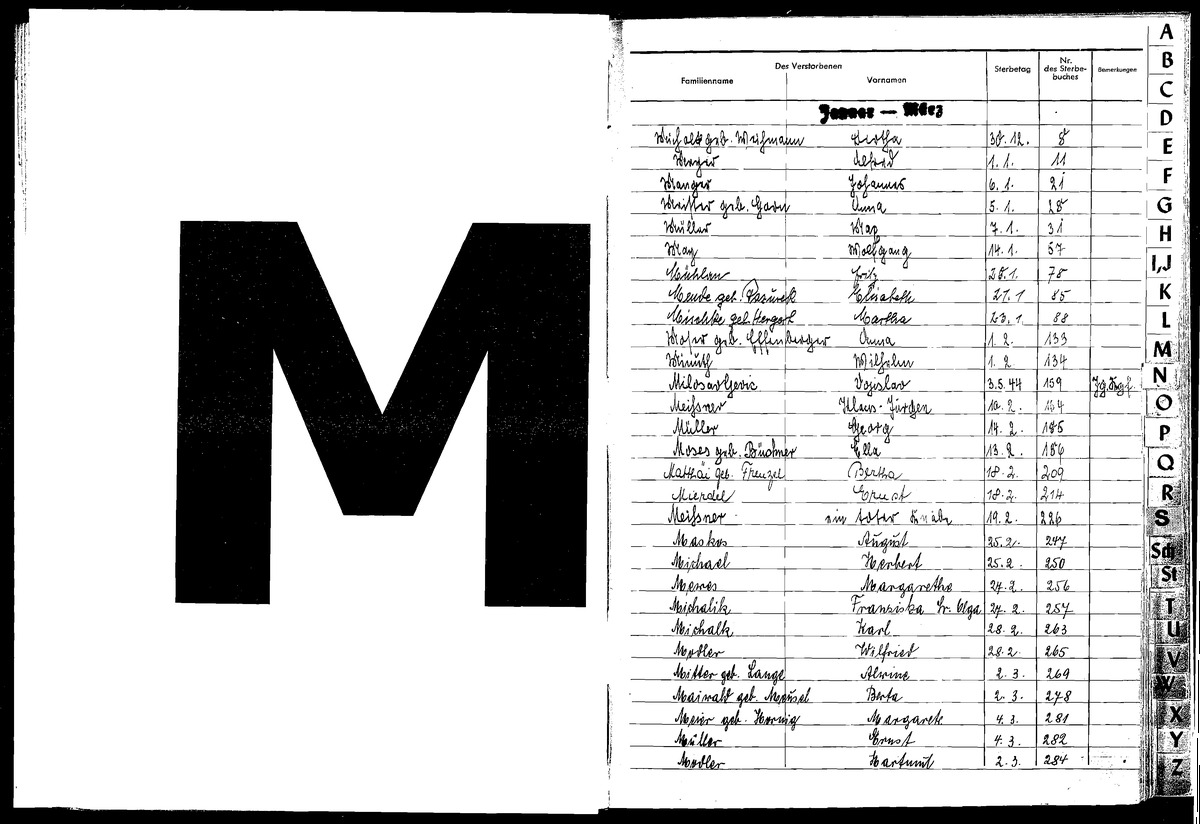 M
Des Verstorbenen
Familienname Vornamen Sterbetag Nr. des Sterbebuches Bemerkungen
Januar — März
geb. Wichmann Bertha 30.12. 8
Alfred 1.1. 11
Manger Johannes 6.1. 21
Meister geb. Anna 5.1. 28
Müller Max 7.1. 31
May Wolfgang 14.1. 57
Mühlan Fritz 78
Mende geb. Elisabeth 21.1 85
Mischke geb. Hergert Martha 23.1. 88
Moser geb. Effenberger Anna 1.2. 133
Wilhelm 1.2 134
Milosavljevic Vojislav 3.5.44 159
Meißner Klaus-Jürgen 10.2.
Müller Georg 14.2. 185
Moses geb. Büchner Ella 13.2. 186
Matthäi geb. Frenzel Bertha 18.2. 209
Mierdel Ernst 18.2. 214
Meißner ein toter Knabe 19.2. 226
Maskos August 25.2. 247
Michael Herbert 25.2. 250
Mewes Margarethe 24.2. 256
Michalik Franziska Olga 24.2. 257
Michalk Karl 28.2. 263
Modler Wilfried 28.2. 265
Mitter geb. Lange Alwine 2.3. 269
Maiwald geb. Meusel Berta 2.3. 278
Meier geb. Hornig Margarete 4.3. 281
Müller Ernst 4.3. 282
Modler Hartmut 2.3. 284
A
B
C
D
E
F
G
H
I,J
K
L
M
N
O
P
Q
R
S
Sch
St
T
U
V
W
X
Y
Z